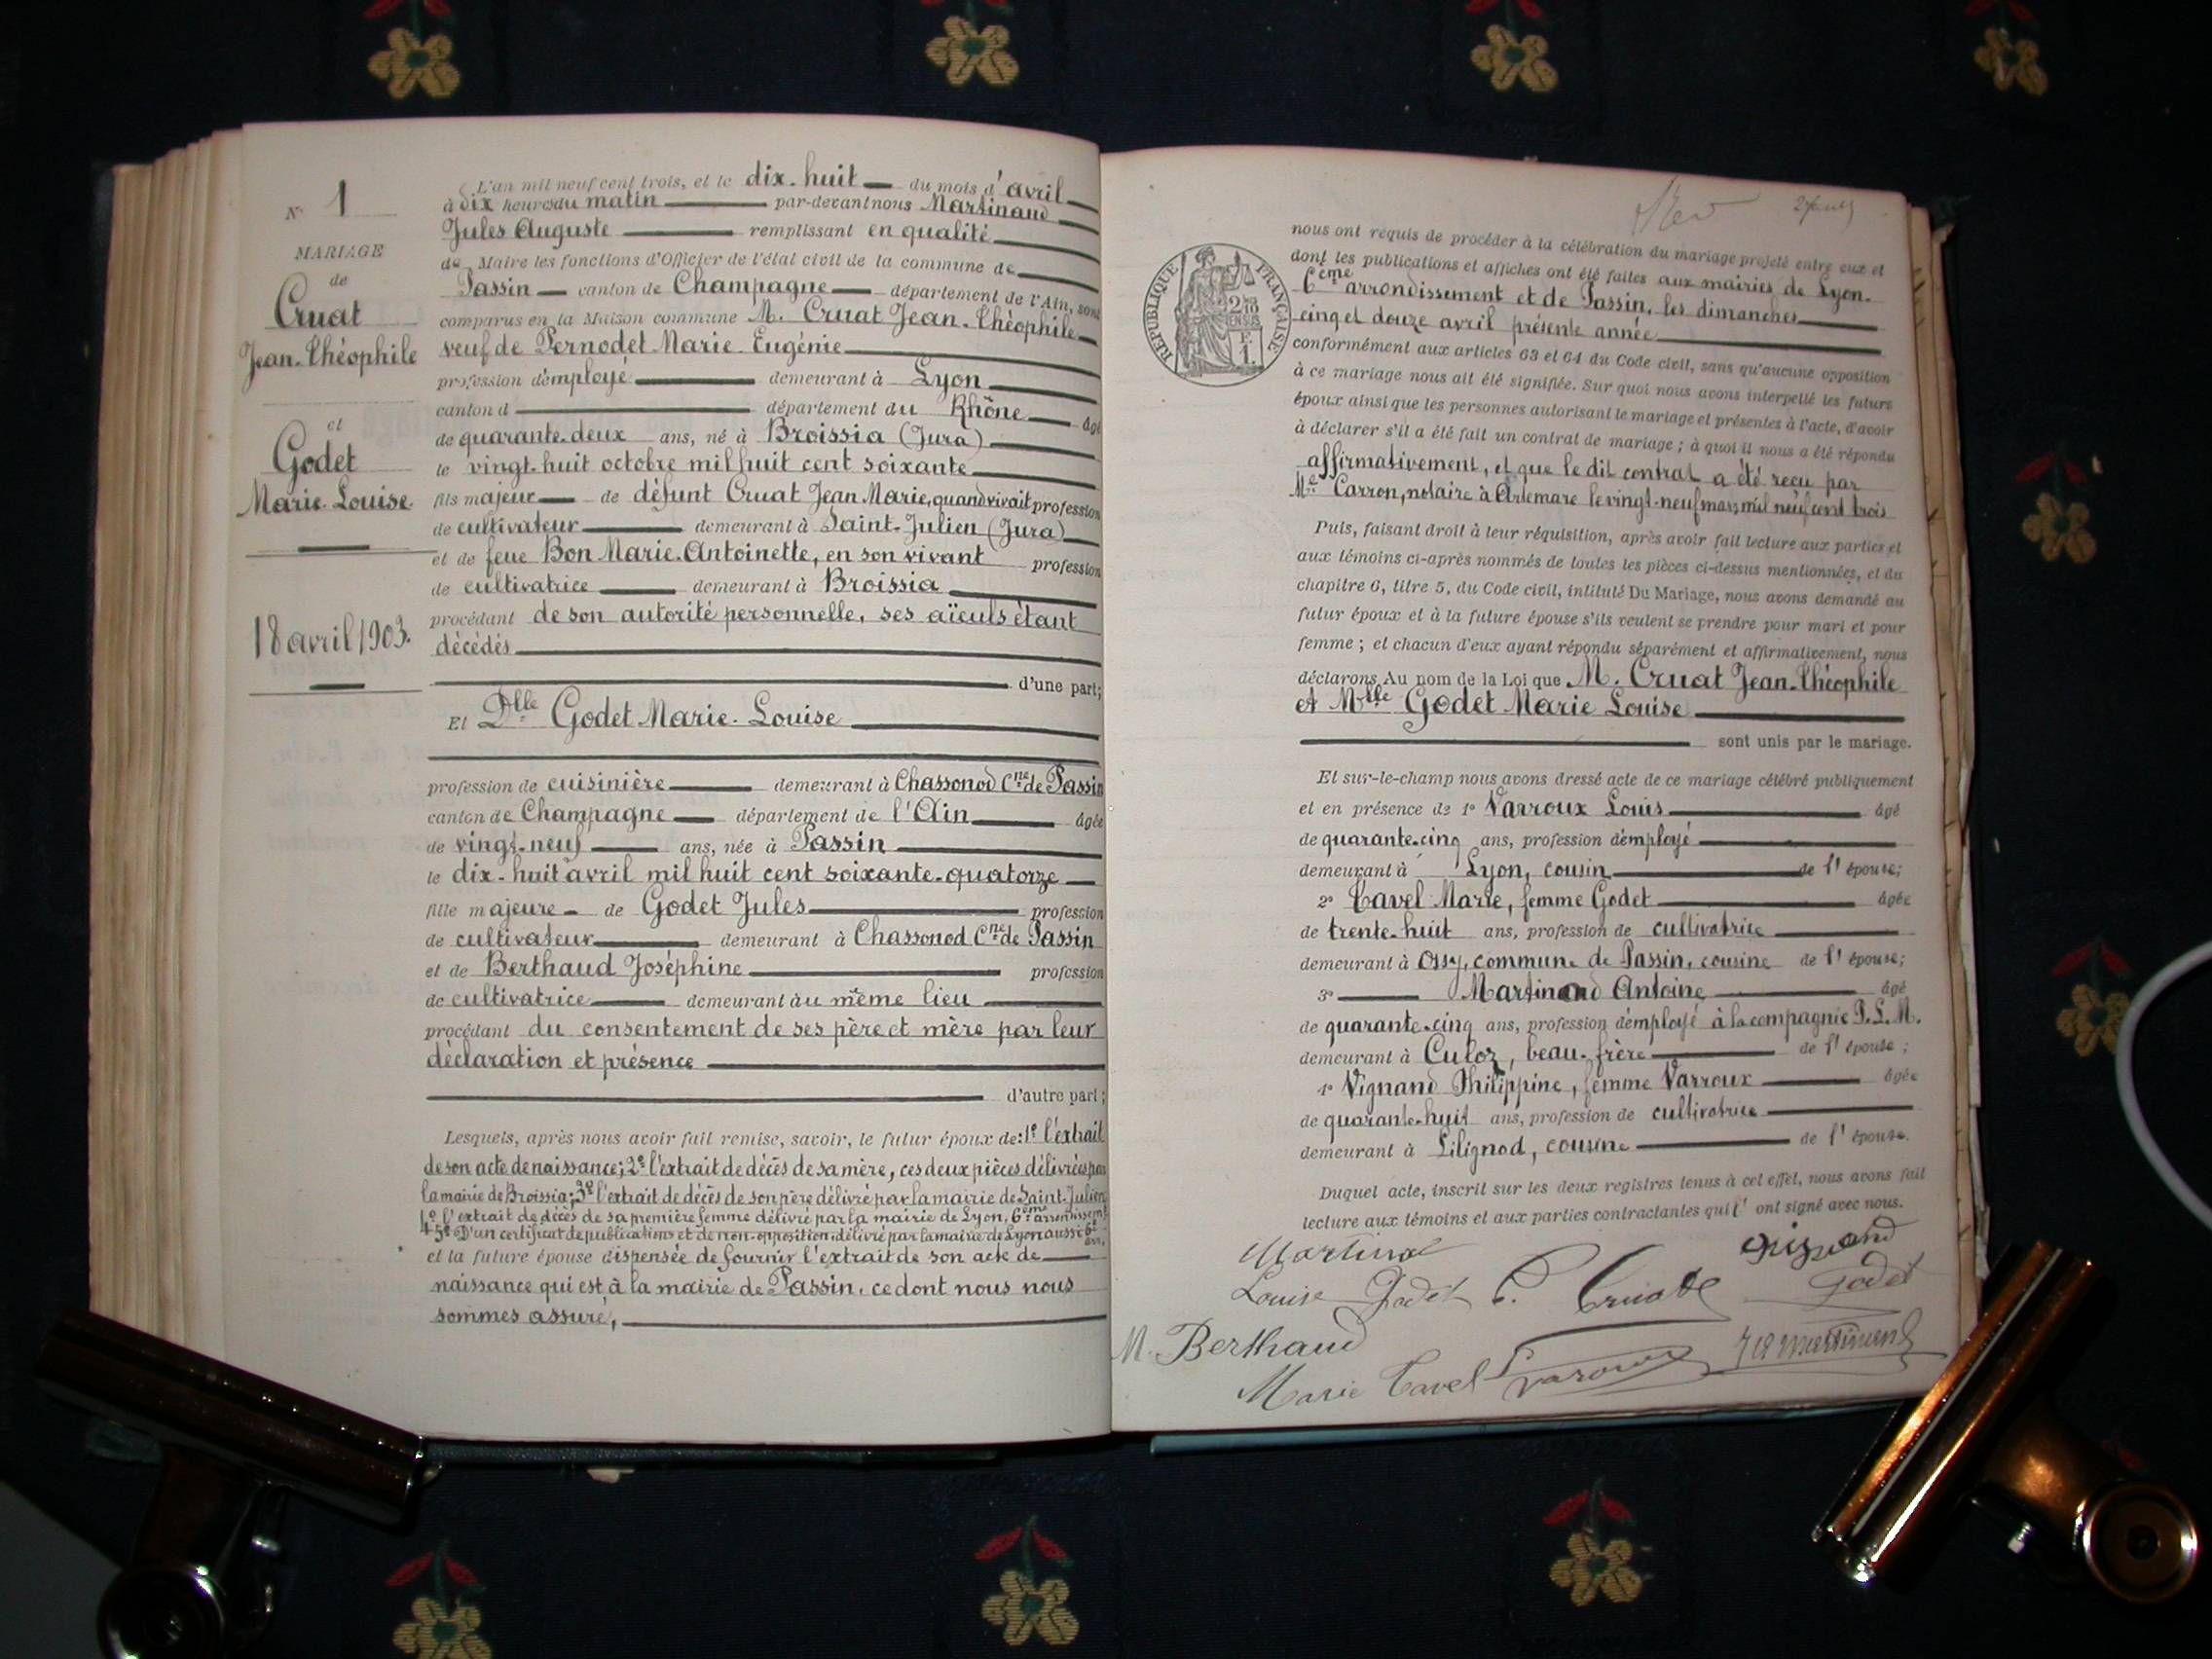 N° 1
MARIAGE
de
Cruat
Jean-Théophile
et
Godet
Marie-Louise
18 avril 1903.
L'an mil neuf cent trois, et le dix-huit du mois d'avril
à dix heures du matin par-devant nous Martinand
Jules Auguste remplissant en qualité
de Maire les fonctions d'Officier de l'état civil de la commune de
Passin canton de Champagne département de l'Ain, sont
comparus en la Maison commune M. Cruat Jean-Théophile
veuf de Pernodet Marie-Eugénie
profession d'employé demeurant à Lyon
canton d département du Rhône âgé
de quarante-deux ans, né à Broissia (Jura)
le vingt-huit octobre mil huit cent soixante
fils majeur de défunt Cruat Jean Marie, quand vivait profession
de cultivateur demeurant à Saint-Julien (Jura)
et de feue Bon Marie-Antoinette, en son vivant profession
de cultivatrice demeurant à Broissia
procédant de son autorité personnelle, ses aïeuls étant
décédés
d'une part;
Et Dlle Godet Marie-Louise
profession de cuisinière demeurant à Chassonod Cne de Passin
canton de Champagne département de l'Ain âgée
de vingt-neuf ans, née à Passin
le dix-huit avril mil huit cent soixante-quatorze
fille majeure de Godet Jules profession
de cultivateur demeurant à Chassonod Cne de Passin
et de Berthaud Joséphine profession
de cultivatrice demeurant au même lieu
procédant du consentement de ses père et mère par leur
déclaration et présence
d'autre part;
Lesquels, après nous avoir fait remise, savoir, le futur époux de: 1° l'extrait
de son acte de naissance; 2° l'extrait de décès de sa mère, ces deux pièces délivrées par
la mairie de Broissia; 3° l'extrait de décès de son père délivré par la mairie de Saint-Julien
4° l'extrait de décès de sa première femme délivré par la mairie de Lyon, 6ème arrondissemt
5° D'un certificat de publications et de non-opposition délivré par la mairie de Lyon aussi 6e arr.
et la future épouse dispensée de fournir l'extrait de son acte de
naissance qui est à la mairie de Passin, ce dont nous nous
sommes assuré,
RÉPUBLIQUE FRANÇAISE
nous ont requis de procéder à la célébration du mariage projeté entre eux et
dont les publications et affiches ont été faites aux mairies de Lyon.
6ème arrondissement et de Passin, les dimanches
cinq et douze avril présente année
conformément aux articles 63 et 64 du Code civil, sans qu'aucune opposition
à ce mariage nous ait été signifiée. Sur quoi nous avons interpellé les futurs
époux ainsi que les personnes autorisant le mariage et présentes à l'acte, d'avoir
à déclarer s'il a été fait un contrat de mariage; à quoi il nous a été répondu
affirmativement, et que le dit contrat a été reçu par
Me Carron, notaire à Artemare le vingt-neuf mars mil neuf cent trois
Puis, faisant droit à leur réquisition, après avoir fait lecture aux parties et
aux témoins ci-après nommés de toutes les pièces ci-dessus mentionnées, et du
chapitre 6, titre 5, du Code civil, intitulé Du Mariage, nous avons demandé au
futur époux et à la future épouse s'ils veulent se prendre pour mari et pour
femme; et chacun d'eux ayant répondu séparément et affirmativement, nous
déclarons Au nom de la Loi que M. Cruat Jean-Théophile
et Mlle Godet Marie Louise
sont unis par le mariage.
Et sur-le-champ nous avons dressé acte de ce mariage célébré publiquement
et en présence de 1° Varroux Louis âgé
de quarante-cinq ans, profession d'employé
demeurant à Lyon, cousin de l'épouse;
2° Tavel Marie, femme Godet âgée
de trente-huit ans, profession de cultivatrice
demeurant à Ossy, commune de Passin, cousine de l'épouse;
3° Martinand Antoine âgé
de quarante-cinq ans, profession d'employé à la compagnie P.L.M.
demeurant à Culoz, beau-frère de l'épouse;
4° Vignand Philippine, femme Varroux âgée
de quarante-huit ans, profession de cultivatrice
demeurant à Lilignod, cousine de l'épouse.
Duquel acte, inscrit sur les deux registres tenus à cet effet, nous avons fait
lecture aux témoins et aux parties contractantes qui l'ont signé avec nous.
Louise Godet Cruat Godet
M. Berthaud
Marie Tavel Varroux